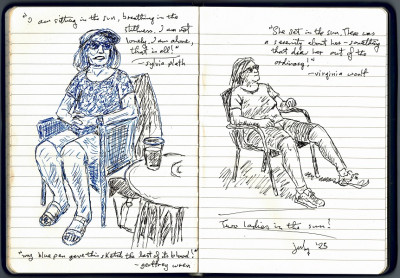 "I am sitting in the sun, breathing in the
stillness. I am not
lonely. I am alone,
that is all!"
-sylvia plath
"my blue pen gave this sketch the last of its blood!"
- geoffrey wren
"She sat in the sun. There was
a serenity about her - something
that drew her out of the
ordinary!"
-virginia woolf
Two ladies in the sun!
July '25